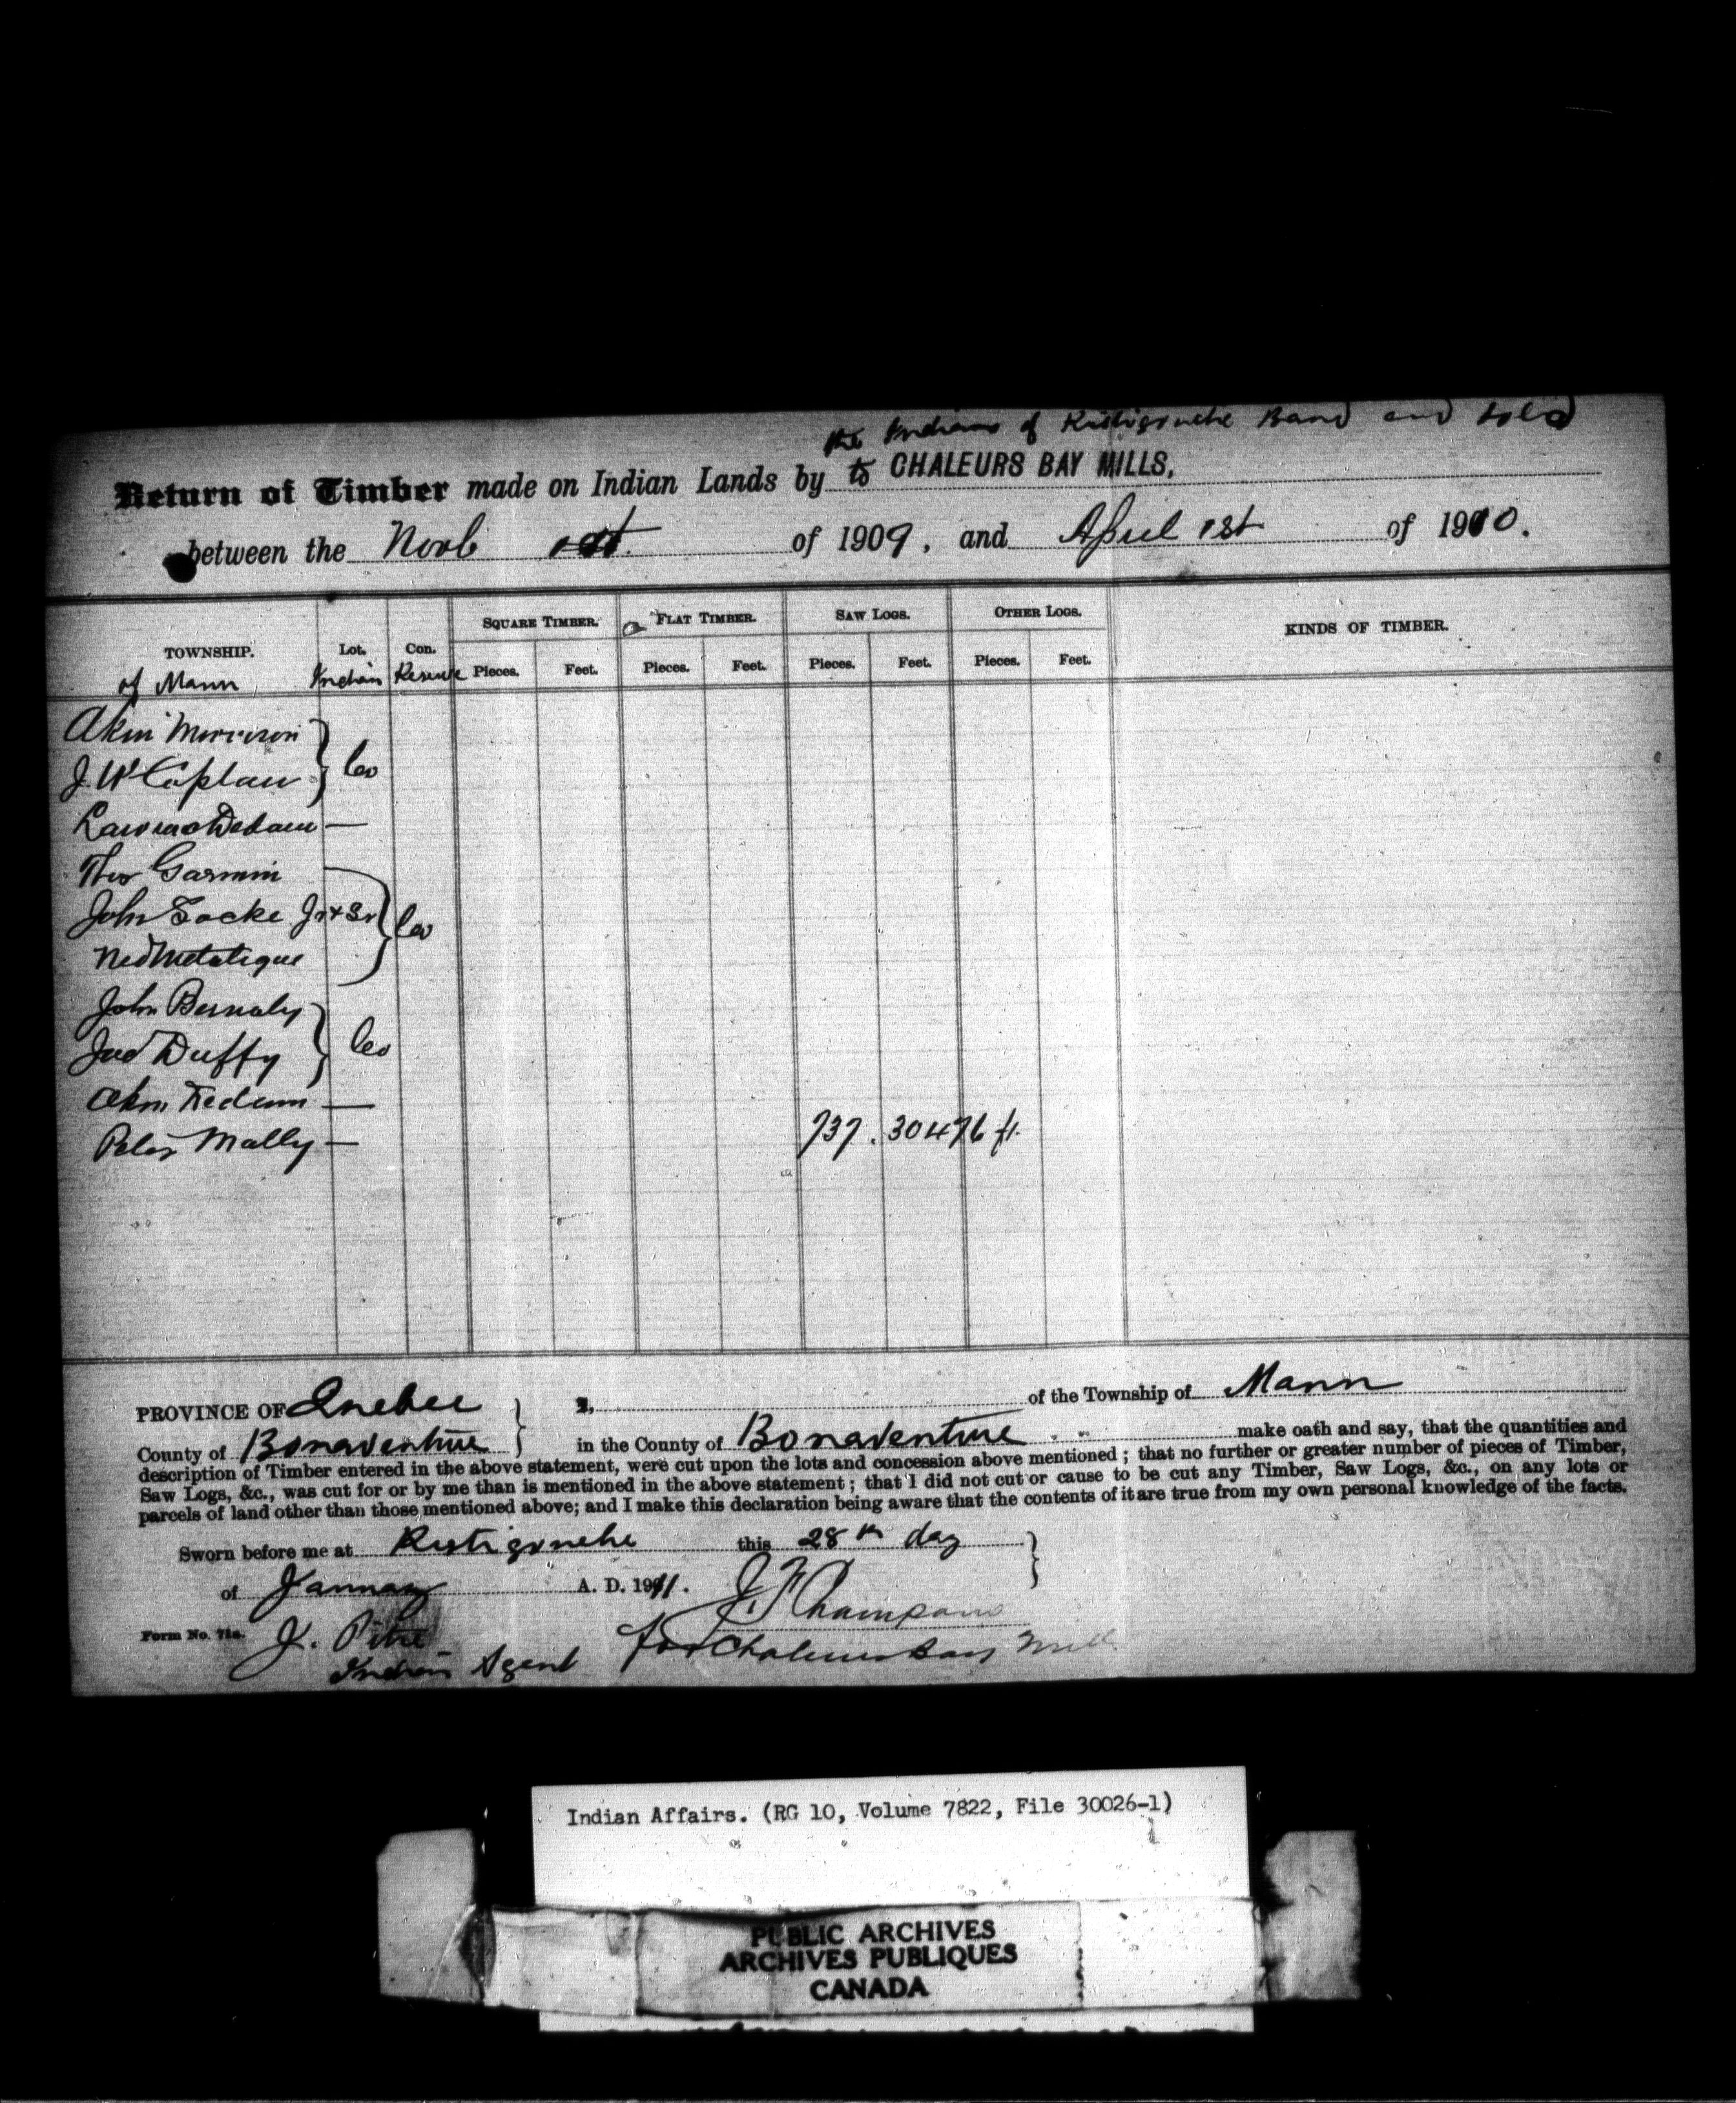 the Indians of Ristigouche Band and sold
Return of Timber made on Indian Lands by to CHALEURS BAY MILLS,
between the Novb 1st. of 1909, and April 1st of 1910.
SQUARE TIMBER. FLAT TIMBER. SAW LOGS. OTHER LOGS. KINDS OF TIMBER.
TOWNSHIP. Lot. Con.
of Mann Indian Reserve Pieces. Feet. Pieces. Feet. Pieces. Feet. Pieces. Feet.
Akin Morrison
J. W Caplan
Co
Thos Garmin
John Locke Jr + Sr
Co
Ned Metatique
John Bernaby
Co
Jas Duffy
Peter Mally — 737. 30476 ft.
PROVINCE OF Quebec
I, of the Township of Mann
County of Bonaventure
in the County of Bonaventure make oath and say, that the quantities and
description of Timber entered in the above statement, were cut upon the lots and concession above mentioned; that no further or greater number of pieces of Timber,
Saw Logs, &c., was cut for or by me than is mentioned in the above statement; that I did not cut or cause to be cut any Timber, Saw Logs, &c., on any lots or
parcels of land other than those mentioned above; and I make this declaration being aware that the contents of it are true from my own personal knowledge of the facts.
Sworn before me at Ristigouche this 28th day
of January A. D. 1911.
Form No. 71a. J. Pitre
Indian Agent
for Chaleurs Bay Mill.
Indian Affairs. (RG 10, Volume 7822, File 30026-1)
PUBLIC ARCHIVES
ARCHIVES PUBLIQUES
CANADA